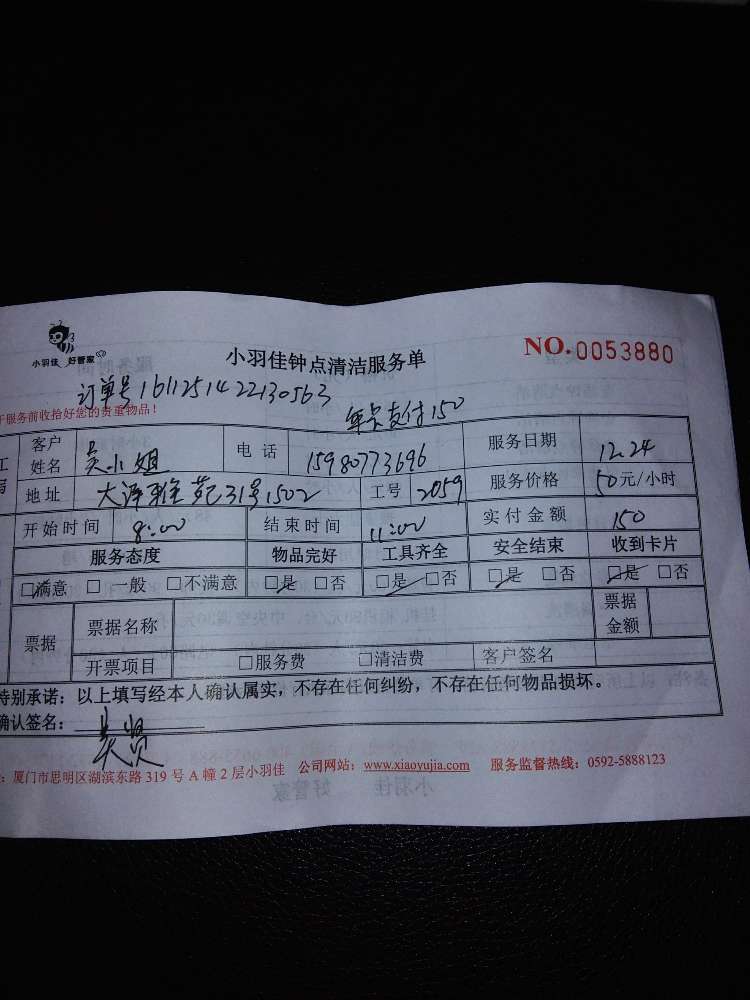 小羽佳 好管家
小羽佳钟点清洁服务单
NO.0053880
订单号 16112514 22130563
于服务前收拾好您的贵重物品!
年卡支付150
客户姓名 吴小姐 电 话 15980773696 服务日期 12.24
地址 大泽雅苑31号1502 工号 2059 服务价格 50元/小时
开始时间 8:00 结束时间 11:00 实付金额 150
服务态度 物品完好 工具齐全 安全结束 收到卡片
☑满意 □ 一般 □不满意 ☑是 □否 ☑是 □否 ☑是 □否 ☑是 □否
票据 票据名称 票据金额
开票项目 □服务费 □清洁费 客户签名
特别承诺:以上填写经本人确认属实,不存在任何纠纷,不存在任何物品损坏。
确认签名: 吴贤
:厦门市思明区湖滨东路 319 号 A 幢 2 层小羽佳 公司网站:www.xiaoyujia.com 服务监督热线:0592-5888123